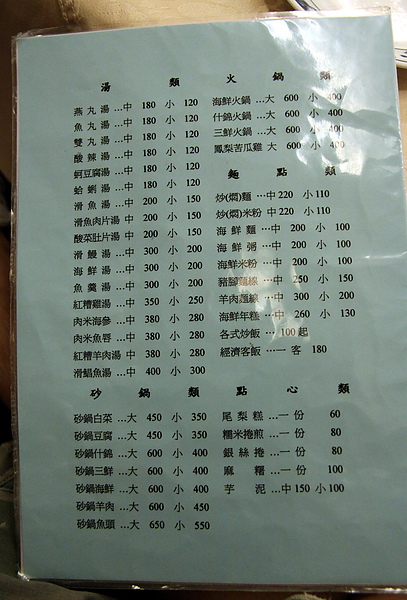 湯 類
燕丸湯…中 180 小 120
魚丸湯…中 180 小 120
雙丸湯…中 180 小 120
酸辣湯…中 180 小 120
蚵豆腐湯…中 180 小 120
蛤蜊湯…中 180 小 120
滑魚湯…中 200 小 150
滑魚肉片湯 中 200 小 150
酸菜肚片湯 中 200 小 150
滑鰻湯…中 300 小 200
海鮮湯…中 300 小 200
魚羹湯…中 300 小 200
紅糟雞湯…中 350 小 250
肉米海參…中 380 小 280
肉米魚唇…中 380 小 280
紅糟羊肉湯 中 380 小 280
滑鯧魚湯…中 400 小 300
火 鍋 類
海鮮火鍋…大 600 小 400
什錦火鍋…大 600 小 400
三鮮火鍋…大 600 小 400
鳳梨苦瓜雞 大 600 小 400
麵 點 類
炒(燜)麵…中 220 小 110
炒(燜)米粉 中 220 小 110
海鮮麵…中 200 小 100
海鮮粥…中 200 小 100
海鮮米粉…中 200 小 100
豬腳麵線…中 250 小 150
羊肉麵線…中 300 小 200
海鮮年糕…中 260 小 130
各式炒飯…100起
經濟客飯…一客 180
砂 鍋 類
砂鍋白菜…大 450 小 350
砂鍋豆腐…大 450 小 350
砂鍋什錦…大 600 小 400
砂鍋三鮮…大 600 小 400
砂鍋海鮮…大 600 小 400
砂鍋羊肉…大 600 小 450
砂鍋魚頭…大 650 小 550
點 心 類
尾梨糕…一份 60
糯米捲煎…一份 80
銀絲捲…一份 80
麻糬…一份 100
芋泥…中 150 小 100